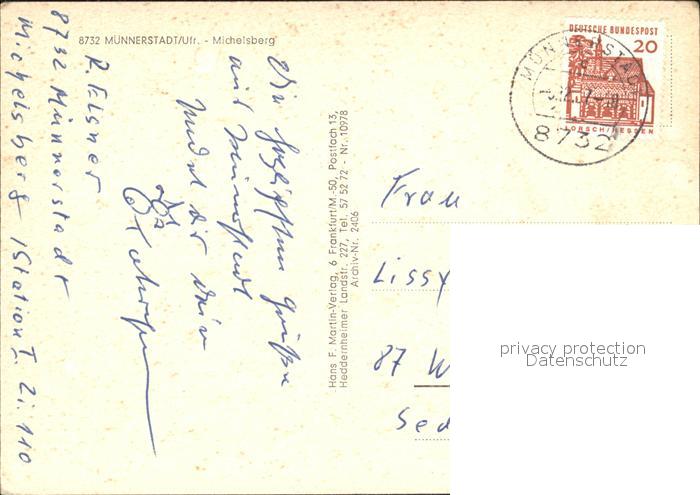 8732 MÜNNERSTADT/Ufr. - Michelsberg
Die herzlichsten Grüße
aus Münnerstadt
sendet dir dein
R. Elsner
8732 Münnerstadt
Michelsberg Station I. Zi. 110
Hans F. Martin-Verlag, 6 Frankfurt/M.-50, Postfach 13,
Heddernheimer Landstr. 227, Tel. 57 52 72 - Nr. 10978
Archiv-Nr. 2406
DEUTSCHE BUNDESPOST
20
LORSCH/HESSEN
MÜNNERSTADT
8732
Frau
Lissy
87 W
Sed
privacy protection
Datenschutz